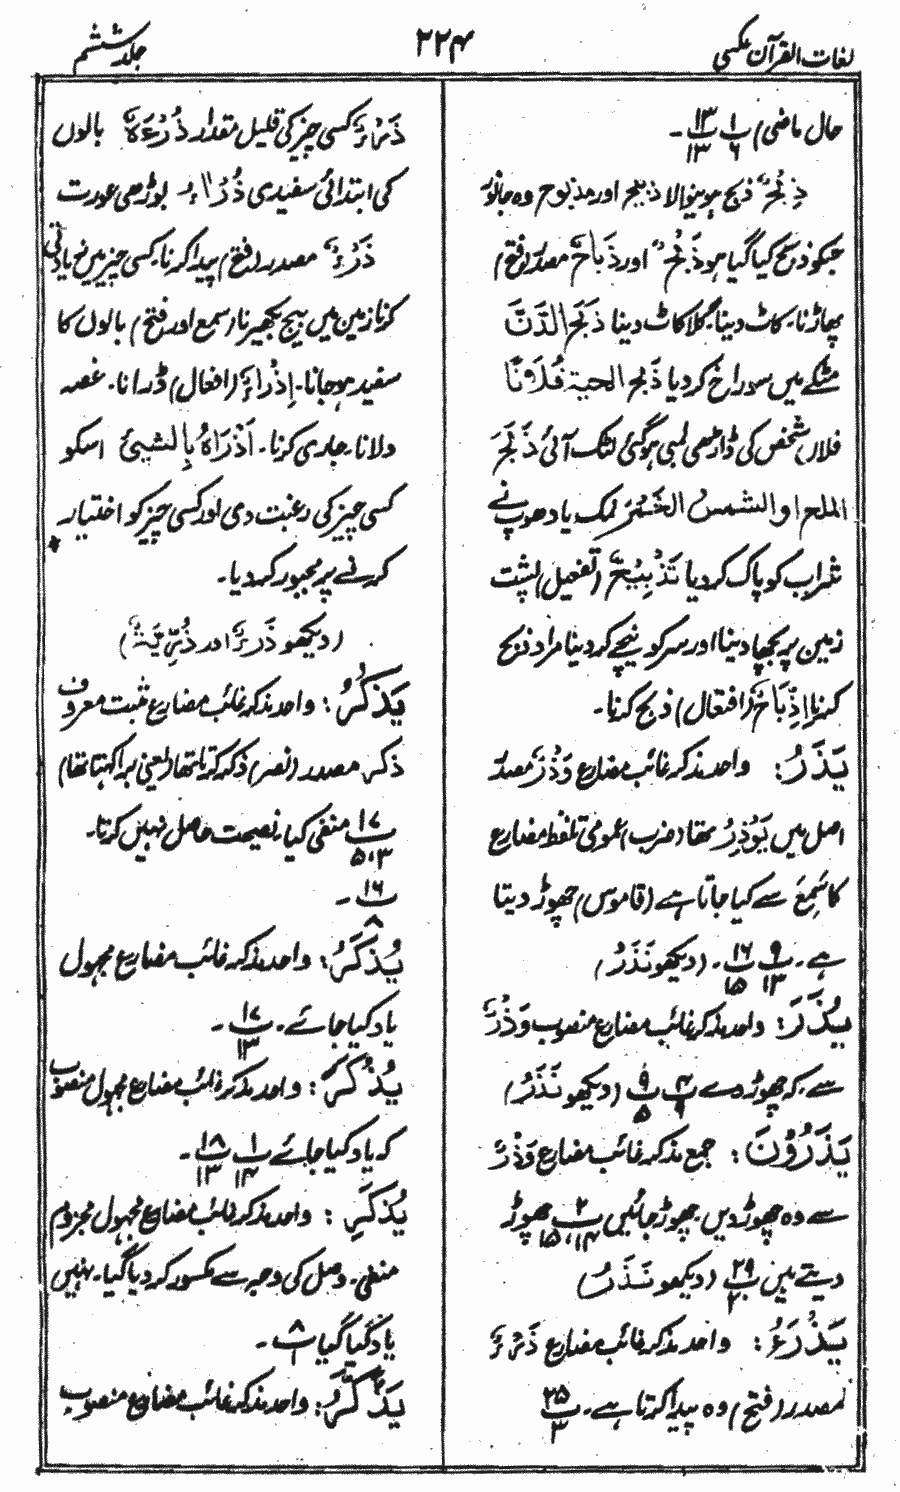 لغات القرآن عکسی
۲۲۴
جلد ششم
حال ماضی) ۱/۶ ۱۳/۱۳ ۔
ذِبْحٌ ذبح ہونیوالا ذبیح اور مذبوح وہ جانور
جسکو ذبح کیا گیا ہو ذَبْحٌ اور ذَبَاحٌ مصدر (فتح)
پھاڑنا۔ کاٹ دینا۔ گلا کاٹ دینا ذَبَحَ الدَّنَّ
مٹکے میں سوراخ کر دیا ذَبَحَ الحیۃ فُلَانًا
فلاں شخص کی ڈاڑھی لمبی ہو گئی لٹک آئی ذَبَحَ
الملح او الشمس الخَمْرَ نمک یا دھوپ نے
شراب کو پاک کر دیا تَذْبِیْحٌ (تفعیل) پشت
زمین پر بچھا دینا اور سر کو نیچے کر دینا مراد ذبح
کرنا اِذِّبَاحٌ (افتعال) ذبح کرنا۔
یَذَرُ: واحد مذکر غائب مضارع وَذْرٌ مصدر
اصل میں یَوْذِرُ تھا (ضرب) عمومی تلفظ مضارع
کا سَمِعَ سے کیا جاتا ہے (قاموس) چھوڑ دیتا
ہے۔ ۹/۱۳ ۱۶/۱۵ ۔ (دیکھو نَذَرُ)
یَذَرَ: واحد مذکر غائب مضارع منصوب وَذْرٌ
سے۔ کہ چھوڑ دے ۴/۹ ۹/۵ (دیکھو نَذَرُ)
یَذَرُوْنَ: جمع مذکر غائب مضارع وَذْرٌ
سے وہ چھوڑ دیں۔ چھوڑ جائیں ۲/۱۵،۱۴ چھوڑ
دیتے ہیں ۲۹/۲۰ (دیکھو نَذَرُ)
یَذْرَءُ: واحد مذکر غائب مضارع ذَرْءٌ
مصدر (فتح) وہ پیدا کرتا ہے۔ ۲۵/۳
ذَرْءٌ کسی چیز کی قلیل مقدار ذُرْءَۃٌ بالوں
کی ابتدائی سفیدی ذُرْاٰءُ بوڑھی عورت
ذَرْءٌ مصدر (فتح) پیدا کرنا۔ کسی چیز میں زیادتی
کرنا زمین میں بیج بکھیرنا (سمع اور فتح) بالوں کا
سفید ہو جانا۔ اِذْرَاءٌ (افعال) ڈرانا۔ غصہ
دلانا۔ جاری کرنا۔ اَذْرَاہُ بِالشیئ اسکو
کسی چیز کی رغبت دی اور کسی چیز کو اختیار
کرنے پر مجبور کر دیا۔
(دیکھو ذَرَءَ اور ذُرِّیَّۃٌ)
یَذْکُرُ: واحد مذکر غائب مضارع مثبت معروف
ذکر مصدر (نصر) ذکر کرتا تھا (یعنی برا کہتا تھا)
۱۷/۵،۳ منفی کیا نصیحت حاصل نہیں کرتا۔
۱۶/۸ ۔
یُذْکَرُ: واحد مذکر غائب مضارع مجہول
یاد کیا جائے۔ ۱۷/۱۳ ۔
یُذْکَرَ: واحد مذکر غائب مضارع مجہول منصوب
کہ یاد کیا جائے ۱/۱۴ ۱۸/۱۳ ۔
یُذْکَرِ: واحد مذکر غائب مضارع مجہول مجزوم
منفی۔ وصل کی وجہ سے مکسور کر دیا گیا۔ نہیں
یاد کیا گیا ۸/۱ ۔
یَذَّکَّرُ: واحد مذکر غائب مضارع منصوب